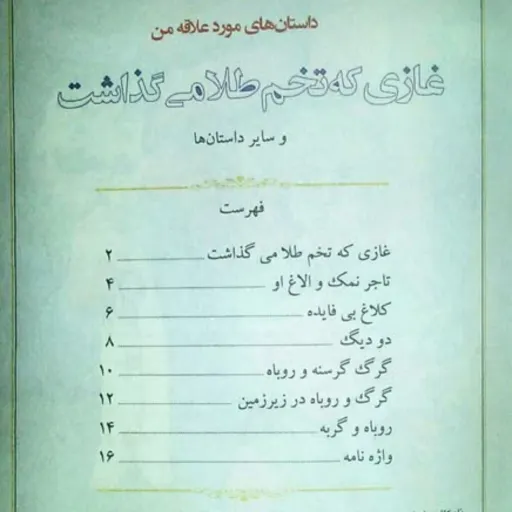 داستان‌های مورد علاقه من
غازی که تخم طلا می گذاشت
و سایر داستان‌ها
فهرست
غازی که تخم طلا می گذاشت ۲
تاجر نمک و الاغ او ۴
کلاغ بی فایده ۶
دو دیگ ۸
گرگ گرسنه و روباه ۱۰
گرگ و روباه در زیرزمین ۱۲
روباه و گربه ۱۴
واژه نامه ۱۶